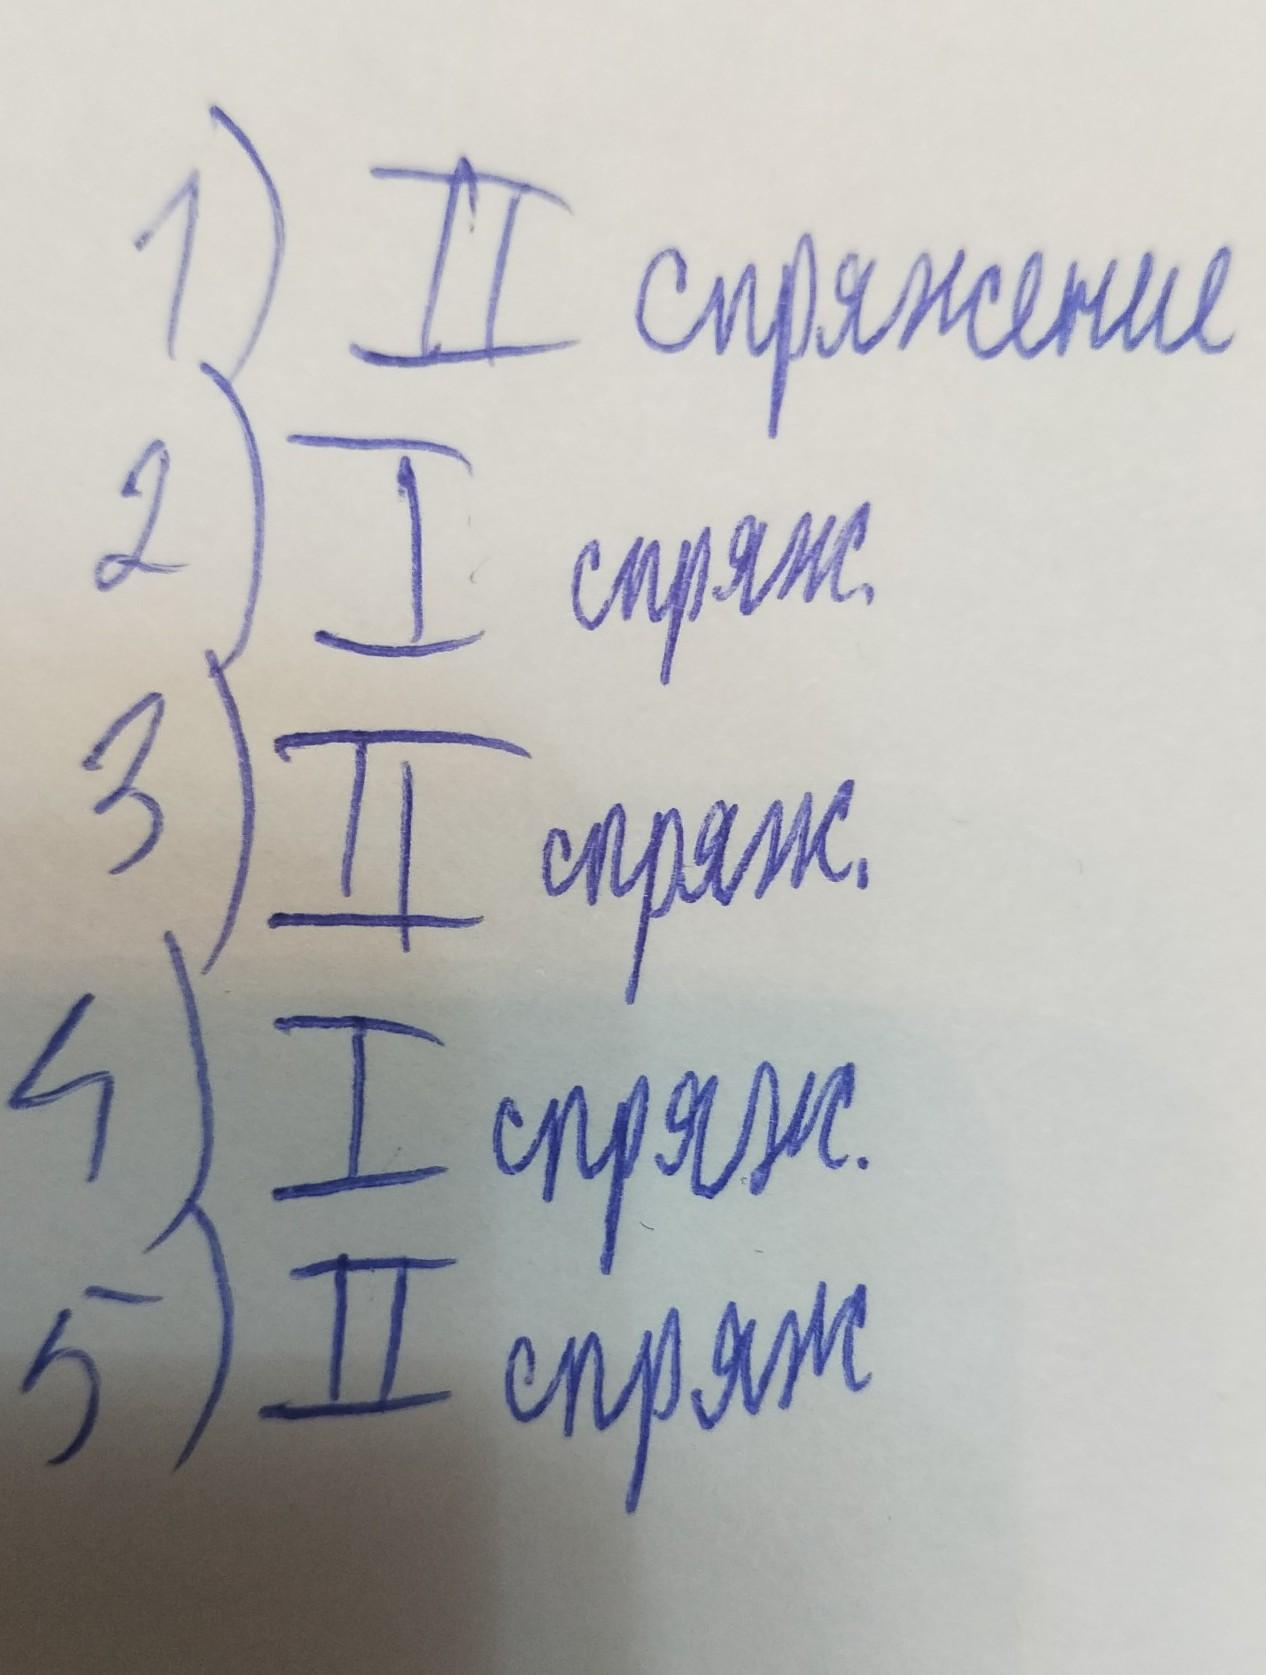 1) II спряжение
2) I спряж.
3) II спряж.
4) I спряж.
5) II спряж